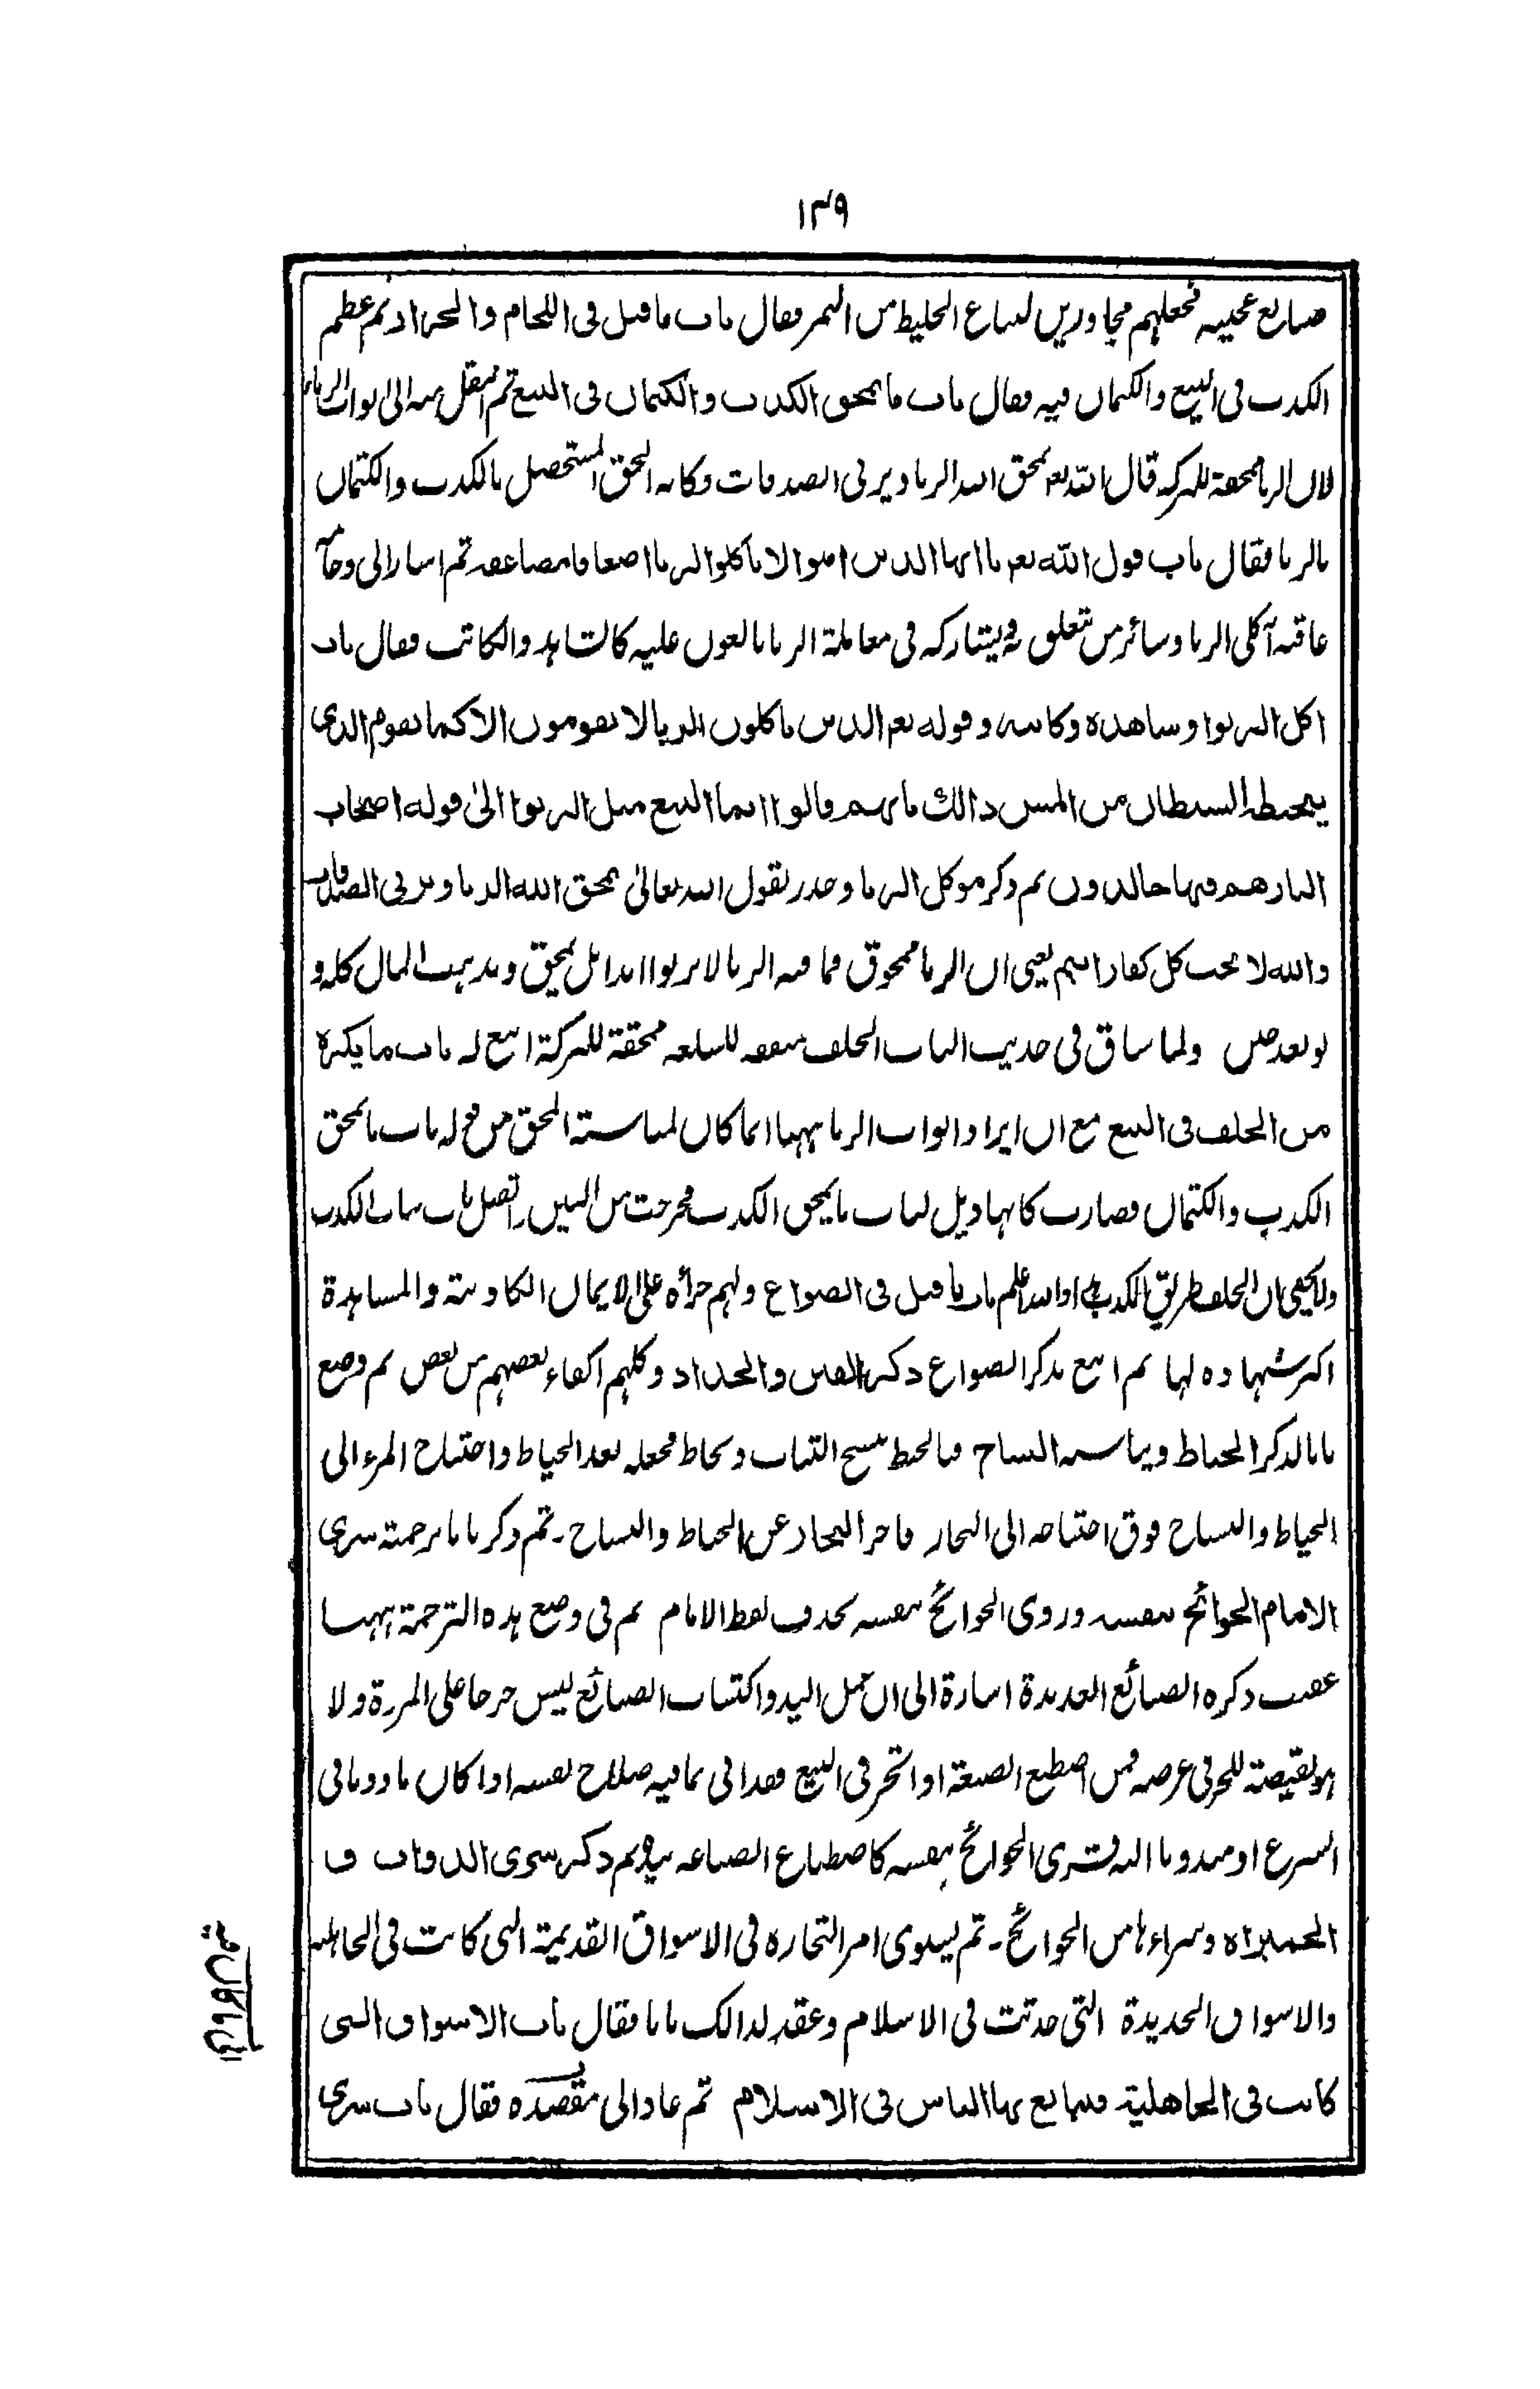 ١٣٩
صنايع عجيبة فجعلهم مجاورين لبياع الخليط من التمر فقال باب ما قيل فى اللحام والجزار ثم عظم
الكذب فى البيع والكتمان فيه فقال باب ما يمحق الكذب والكتمان فى البيع ثم انتقل منه الى ابواب الربا
لان الربا ممحقة للبركة قال الله تعم يمحق الله الربا ويربى الصدقات وكانه الحق المستحصل بالكذب والكتمان
بالربا فقال باب قول الله تعم يا ايها الذين امنوا لا تاكلوا الربا اضعافا مضاعفة ثم اشار الى
عاقبة آكلى الربا وسائر من تعلق به ويشاركه فى معاملة الربا بالعون عليه كالشاهد والكاتب فقال باب
اكل الربوا وشاهده وكاتبه وقوله تعم الذين ياكلون الربا لا يقومون الا كما يقوم الذى
يتخبطه الشيطان من المس ذالك بانهم قالوا انما البيع مثل الربوا الى قوله اصحاب
النار هم فيها خالدون ثم ذكر موكل الربا وحذر بقول الله تعالى يمحق الله الربا ويربى الصدقات
والله لا يحب كل كفار اثيم يعنى ان الربا ممحوق فما فيه الربا لا يربوا ابدا بل يمحق ويذهب المال كله و
لو بعد حين ولما ساق فى حديث الباب الحلف منفقة للسلعة ممحقة للبركة اتبع له باب ما يكره
من الحلف فى البيع مع ان ايراد ابواب الربا ههنا انما كان لمناسبة المحق من قوله باب ما يمحق
الكذب والكتمان فصارت كانها ذيل لباب ما يمحق الكذب فخرجت من البين اتصل باب بباب الكذب
ولا يخفى ان الحلف طريق الكذب والله اعلم باب ما قيل فى الصواغ ولهم جرأة على الايمان الكاذبة والمشاهدة
اكبر شهادة لها ثم اتبع بذكر الصواغ ذكر القين والحداد وكلهم اكفاء بعضهم من بعض ثم وضع
بابا لذكر الخياط ويناسبه النساج فبالخيط ينسج الثياب وتخاط فجعله بعد الخياط واحتياج المرء الى
الخياط والنساج فوق احتياجه الى النجار فاخر النجار عن الخياط والنساج - ثم ذكر بابا برجمة شرى
الامام الحوائج بنفسه وروى الحوائج بنفسه بحذف لفظ الامام ثم فى وضع هذه الترجمة ههنا
عقب ذكره الصنائع العديدة اشارة الى ان عمل اليد واكتساب الصنائع ليس جرحا على المروة ولا
هو نقيصة للحر فى عرضه فمن اصطنع الصنعة او اتجر فى البيع فقد اتى بما فيه صلاح نفسه اذا كان ماذونا فى
الشرع او مندوبا اليه فشرى الحوائج بنفسه كاصطناع الصناعة بيده ثم ذكر شرى الدواب و
الحمير وشراءها من الحوائج - ثم يستوى امر التجارة فى الاسواق القديمة التى كانت فى الجاهلية
والاسواق الجديدة التى حدثت فى الاسلام وعقد لذالك بابا فقال باب الاسواق التى
كانت فى الجاهلية فتبايع بها الناس فى الاسلام ثم عاد الى مقصده فقال باب شرى